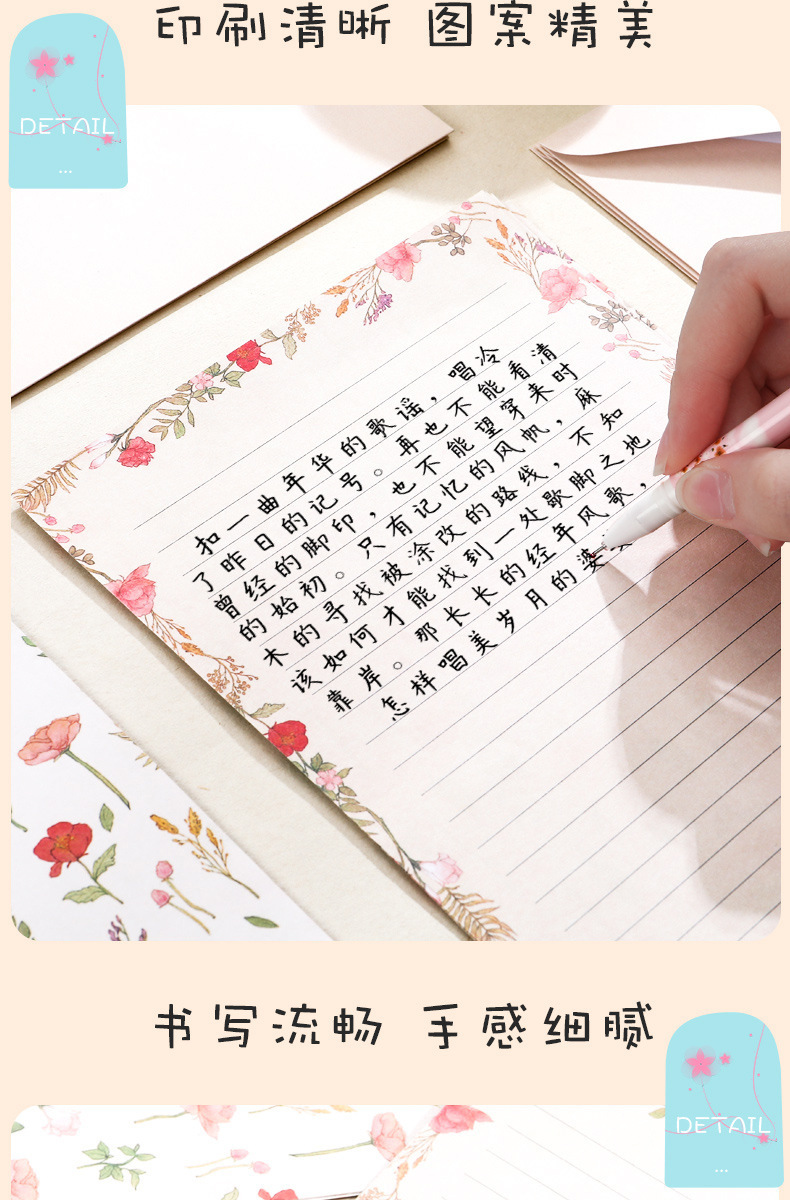 印刷清晰 图案精美
DETAIL
...
扣一曲年华的歌谣，唱冷
了昨日的记号。再也不能看清
曾经的脚印，也不能望穿来时
的始初。只有记忆的风帆，麻
木的寻找被涂改的路线，不知
该如何才能找到一处歇脚之地
靠岸。那长长的经年风歌，
怎样唱美岁月的婆
书写流畅 手感细腻
DETAIL
...